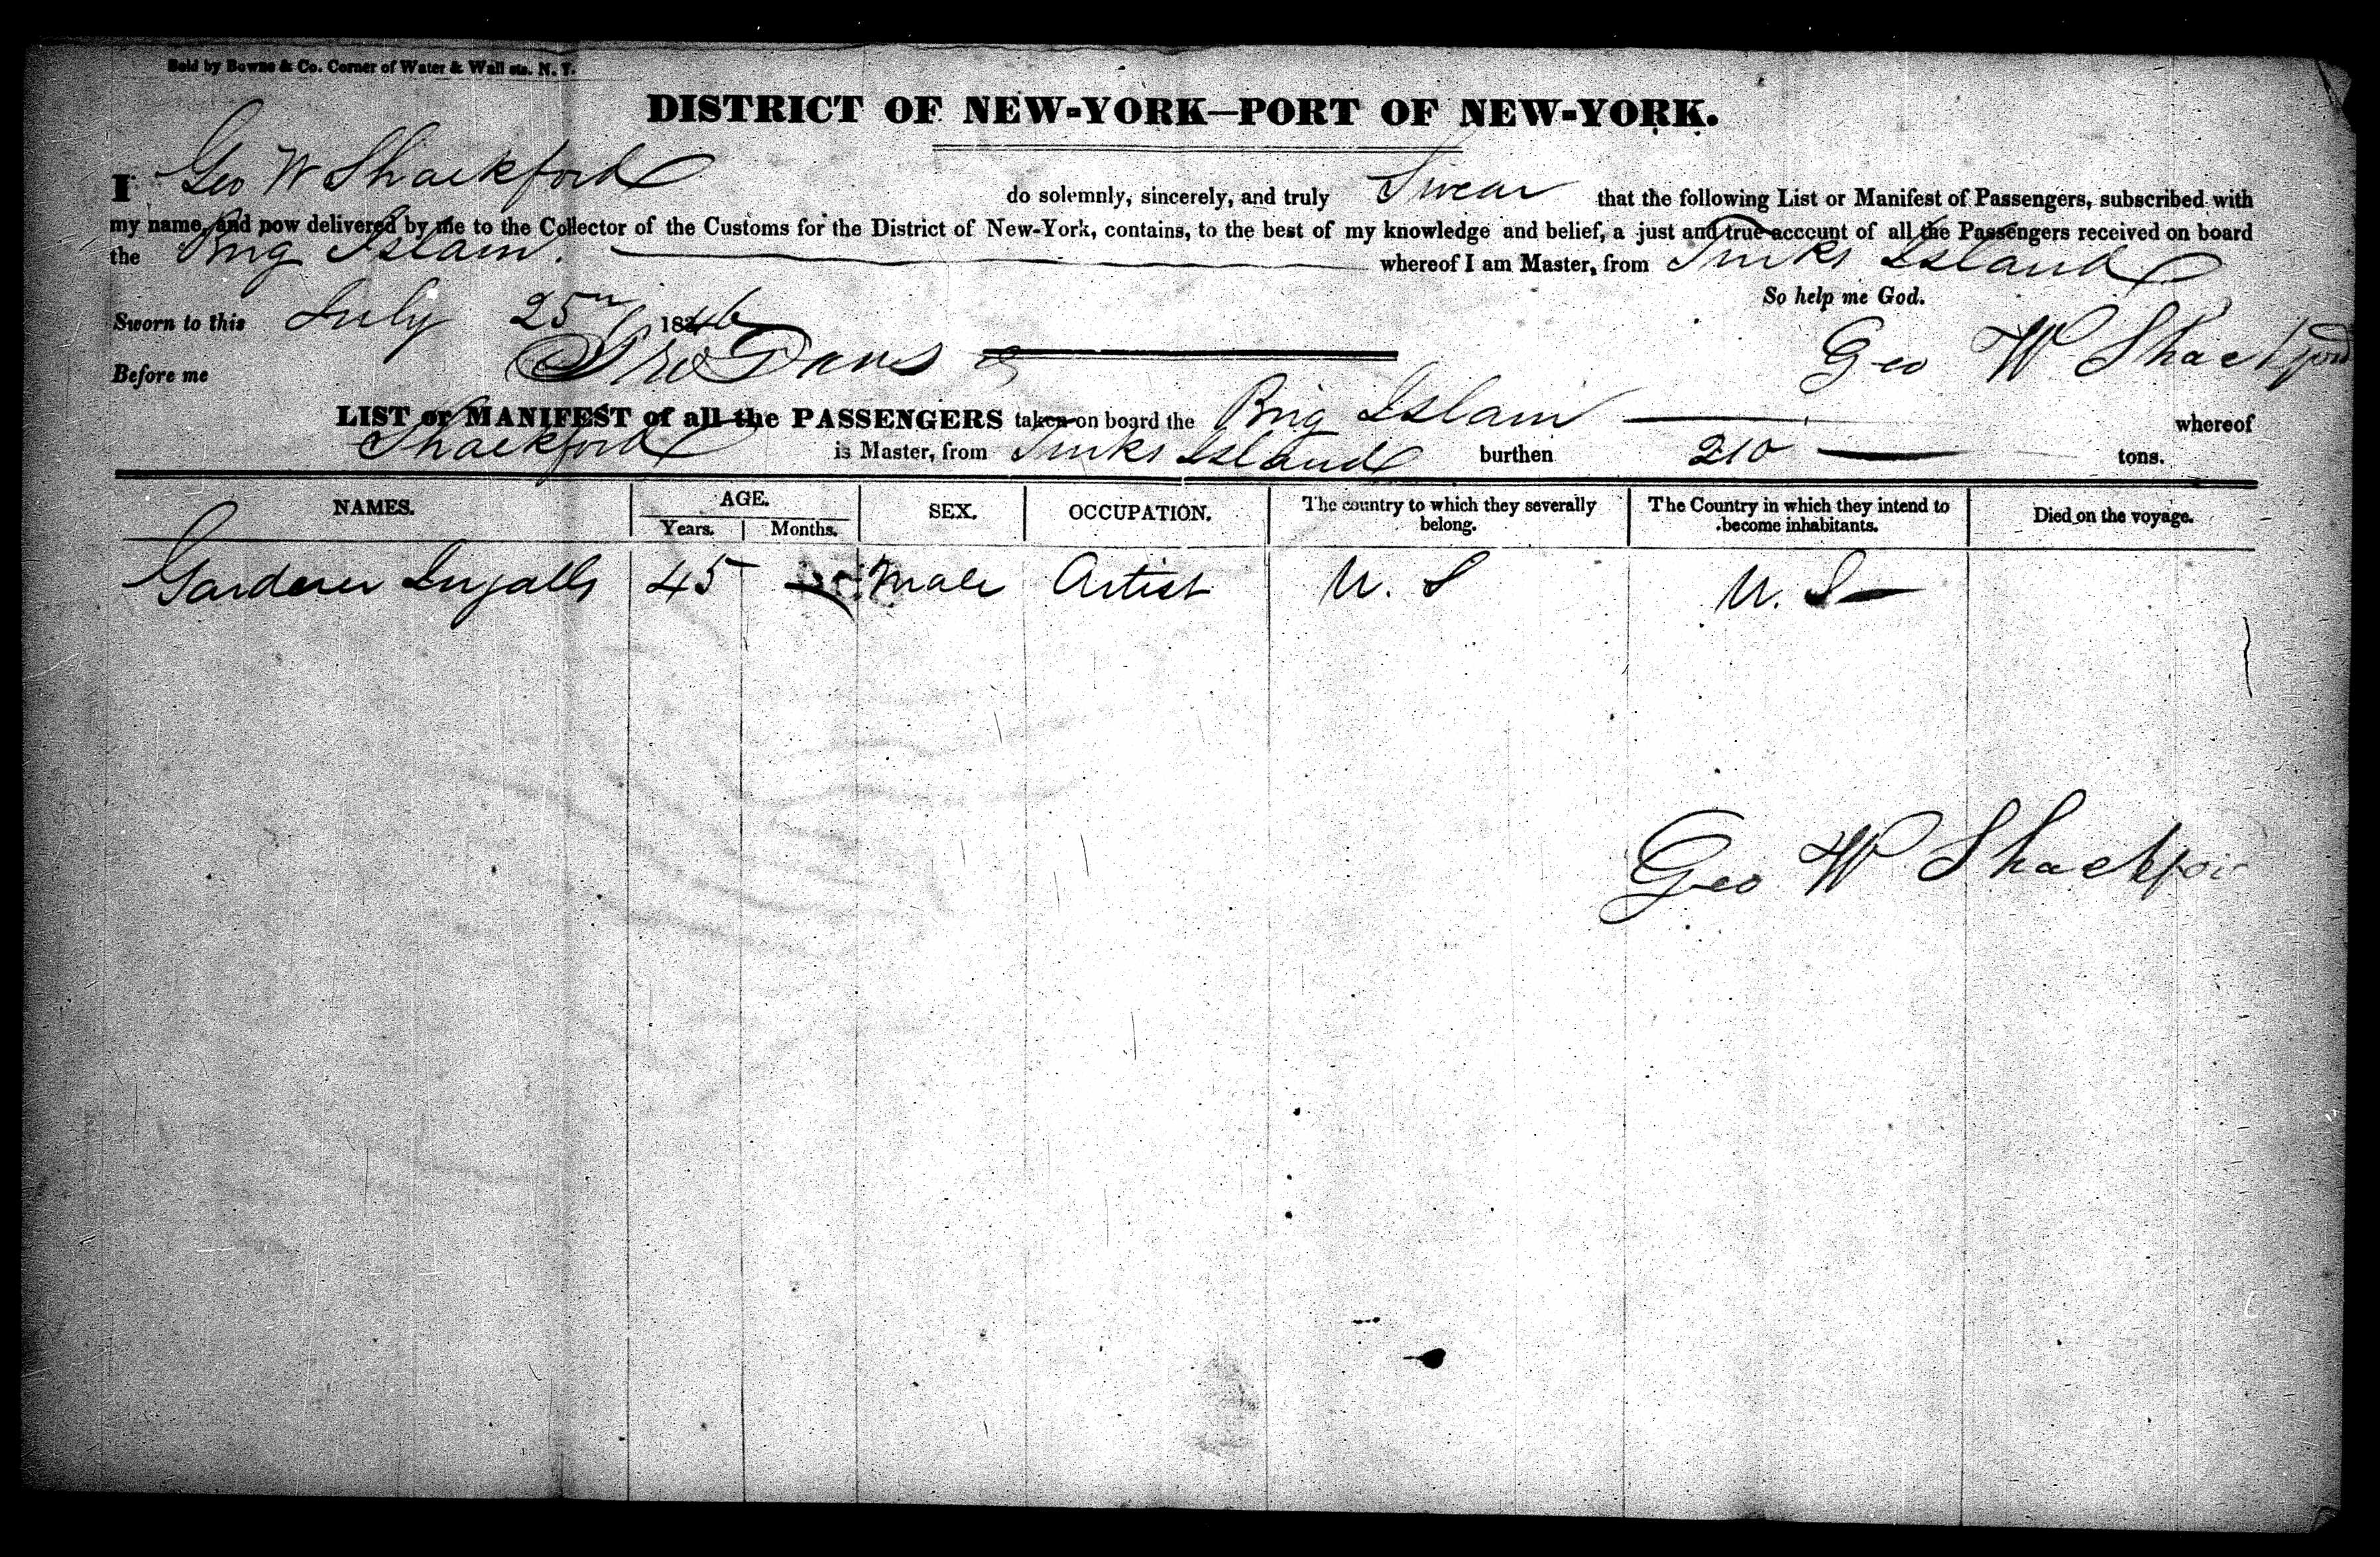 Sold by Bowne & Co. Corner of Water & Wall sts. N. Y.
DISTRICT OF NEW-YORK—PORT OF NEW-YORK.
I Geo W Shackford do solemnly, sincerely, and truly Swear that the following List or Manifest of Passengers, subscribed with
my name, and now delivered by me to the Collector of the Customs for the District of New-York, contains, to the best of my knowledge and belief, a just and true account of all the Passengers received on board
the Brig Islam. whereof I am Master, from Turks Island
So help me God.
Sworn to this July 25th 1846
Geo W Shackford
Before me
LIST or MANIFEST of all the PASSENGERS taken on board the Brig Islam whereof
Shackford is Master, from Turks Island burthen 210 tons.
NAMES. AGE. SEX. OCCUPATION. The country to which they severally belong. The Country in which they intend to become inhabitants. Died on the voyage.
Years. Months.
Garderer Ingalls 45 Male Artist U. S U. S
Geo W Shackfor